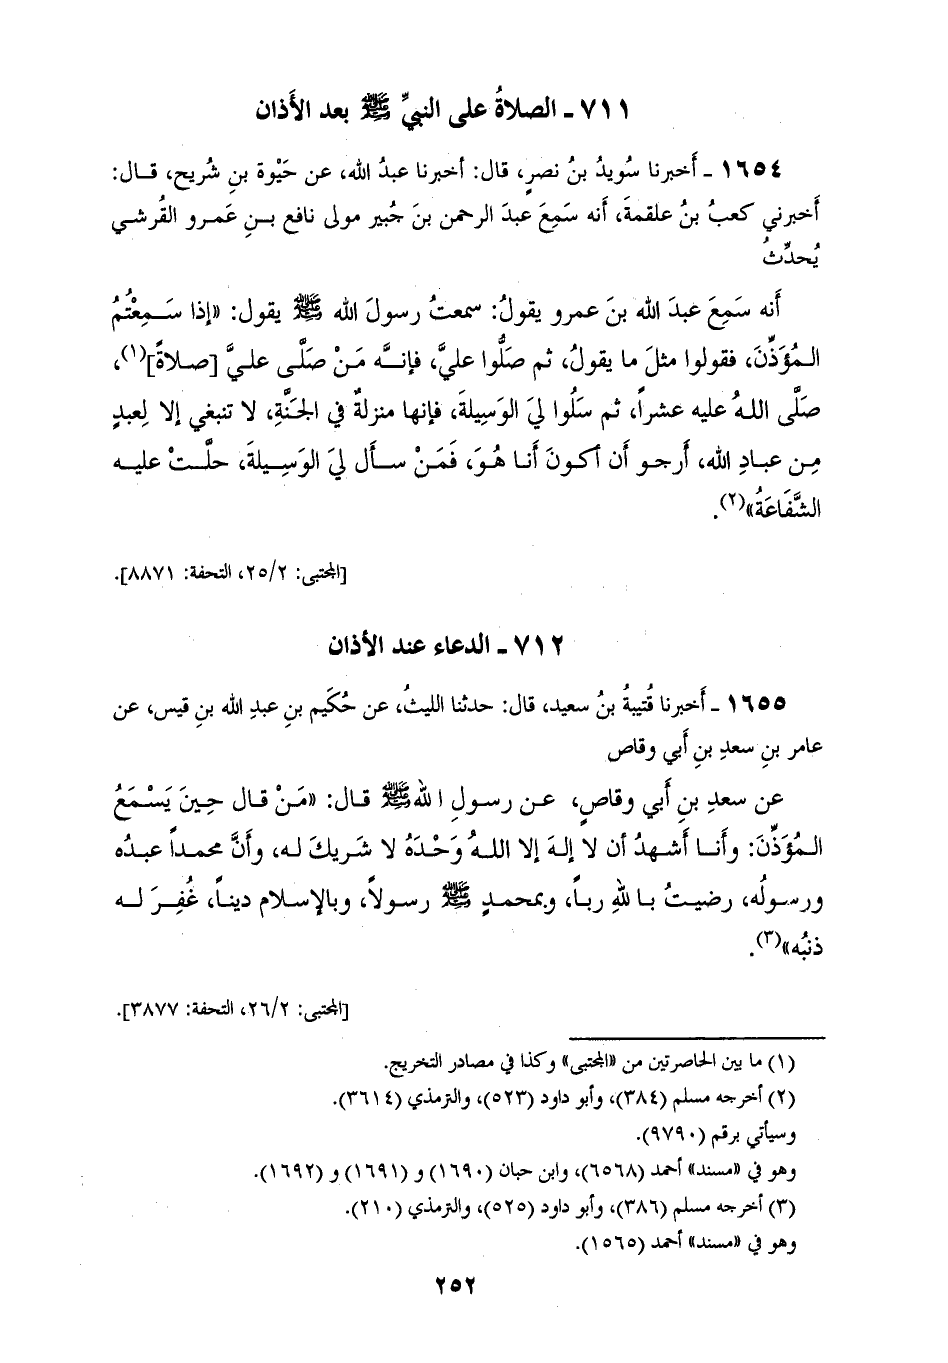 ٧١١ ـ الصلاةُ على النبيِّ ﷺ بعد الأَذان
١٦٥٤ ـ أَخبرنا سُويدُ بنُ نصرٍ، قال: أخبرنا عبدُ الله، عن حَيْوة بنِ شُريح، قـال:
أَخبرني كعبُ بنُ علقمةَ، أَنه سَمِعَ عبدَ الرحمن بنَ جُبير مولى نافع بـنِ عَمرو القُرشي
يُحدِّثُ
أَنه سَمِعَ عبدَ الله بنَ عمرو يقولُ: سمعتُ رسولَ الله ﷺ يقول: «إذا سَـمِعْتُمُ
الـمُؤَذِّنَ، فقولوا مثلَ ما يقولُ، ثم صَلُّوا عليَّ، فإنـَّه مَـنْ صَلَّـى علـيَّ [صـلاةً](١)،
صَلَّى اللـهُ عليه عشراً، ثم سَلُوا ليَ الوَسِيلةَ، فإنها منزلةٌ في الجَنَّةِ، لا تنبغي إلا لِعبدٍ
مِن عبادِ الله، أَرجـو أَن أكـونَ أنـا هُوَ، فَمَـنْ سـأل ليَ الوَسِـيلةَ، حلَّـتْ عليـه
الشَّفَاعَةُ»(٢).
[المجتبى: ٢٥/٢، التحفة: ٨٨٧١].
٧١٢ ـ الدعاء عند الأذان
١٦٥٥ ـ أَخبرنا قُتيبةُ بنُ سعيد، قال: حدثنا الليثُ، عن حُكَيم بنِ عبدِ الله بنِ قيس، عن
عامر بنِ سعدِ بنِ أَبي وقاص
عن سعدِ بنِ أَبي وقاصٍ، عـن رسـولِ اللهِﷺ قـال: «مَـنْ قال حِينَ يَسْـمَعُ
الـمُؤَذِّنَ: وأَنـا أَشهدُ أن لا إلـهَ إلا اللـهُ وَحْدَهُ لا شريكَ لـه، وأَنَّ محمـداً عبدُه
ورسولُه، رضيـتُ بـا للهِ ربـاً، وبمحمـدٍ ﷺ رسـولاً، وبالإسـلام دينـاً، غُفِـرَ لـه
ذنبُه»(٣).
[المجتبى: ٢٦/٢، التحفة: ٣٨٧٧].
(١) ما بين الحاصرتين من «المجتبى» وكذا في مصادر التخريج.
(٢) أخرجه مسلم (٣٨٤)، وأبو داود (٥٢٣)، والترمذي (٣٦١٤).
وسيأتي برقم (٩٧٩٠).
وهو في «مسند» أحمد (٦٥٦٨)، وابن حبان (١٦٩٠) و (١٦٩١) و (١٦٩٢).
(٣) أخرجه مسلم (٣٨٦)، وأبو داود (٥٢٥)، والترمذي (٢١٠).
وهو في «مسند» أحمد (١٥٦٥).
٢٥٢